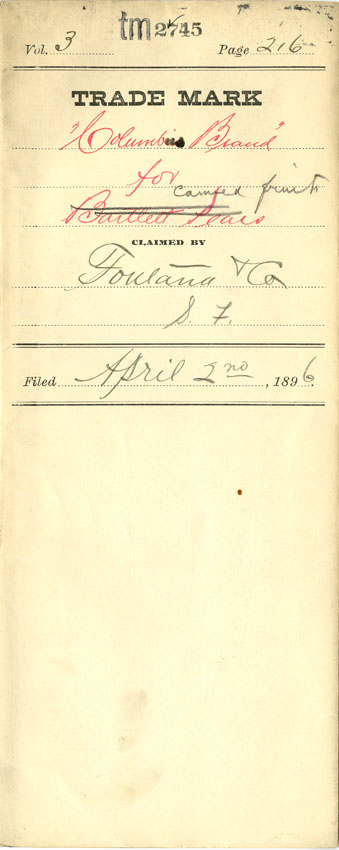 tm 2745
Vol. 3 Page 216
TRADE MARK
"Columbus Brand"
for canned fruits
Bartlett Pears
CLAIMED BY
Fontana & Co
S. F.
Filed April 2nd, 1896.